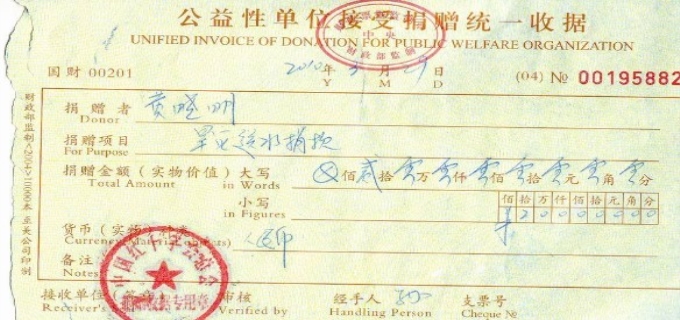 公益性单位接受捐赠统一收据
UNIFIED INVOICE OF DONATION FOR PUBLIC WELFARE ORGANIZATION
中央
财政部监制
国财 00201 2010年 3 月 29 日 (04) № 00195882
Y M D
捐赠者 黄晓明
Donor
捐赠项目 旱灾送水捐款
For Purpose
捐赠金额(实物价值)大写 ⊗佰贰拾零万零仟零佰零拾零元零角零分
Total Amount in Words
小写 佰拾万仟佰拾元角分
in Figures ¥20000000
货币(实物)
Currency 人民币
备注
Notes
接收单位 审核 经手人 支票号
Receiver's Verified by Handling Person Cheque №
中国红十字会
专用章
财政部监制<2004>10000本